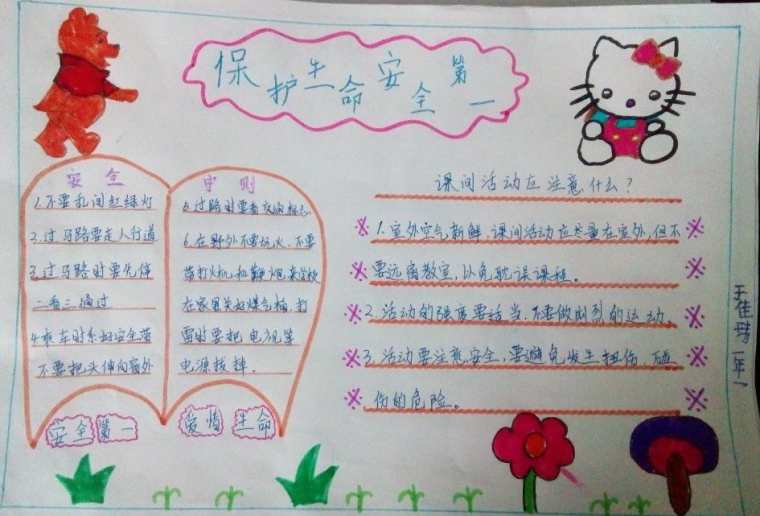 保护生命安全第一
安全守则
1.不要乱闯红绿灯
2.过马路要走人行道
3.过马路时要先停
二看三通过
4.乘车时系好安全带
不要把头伸向窗外
5.过路时要看交通标志
6.在野外不要玩火.不要
带打火机和鞭炮来学校
在家里关好煤气桶,打
雷时要把电视等
电源拔掉.
安全第一
爱惜生命
课间活动应注意什么?
1.室外空气新鲜,课间活动应尽量在室外,但不
要远离教室,以免耽误课程.
2.活动的强度要适当,不要做剧烈的运动.
3.活动要注意安全,要避免发生扭伤、碰
伤的危险。
一年一